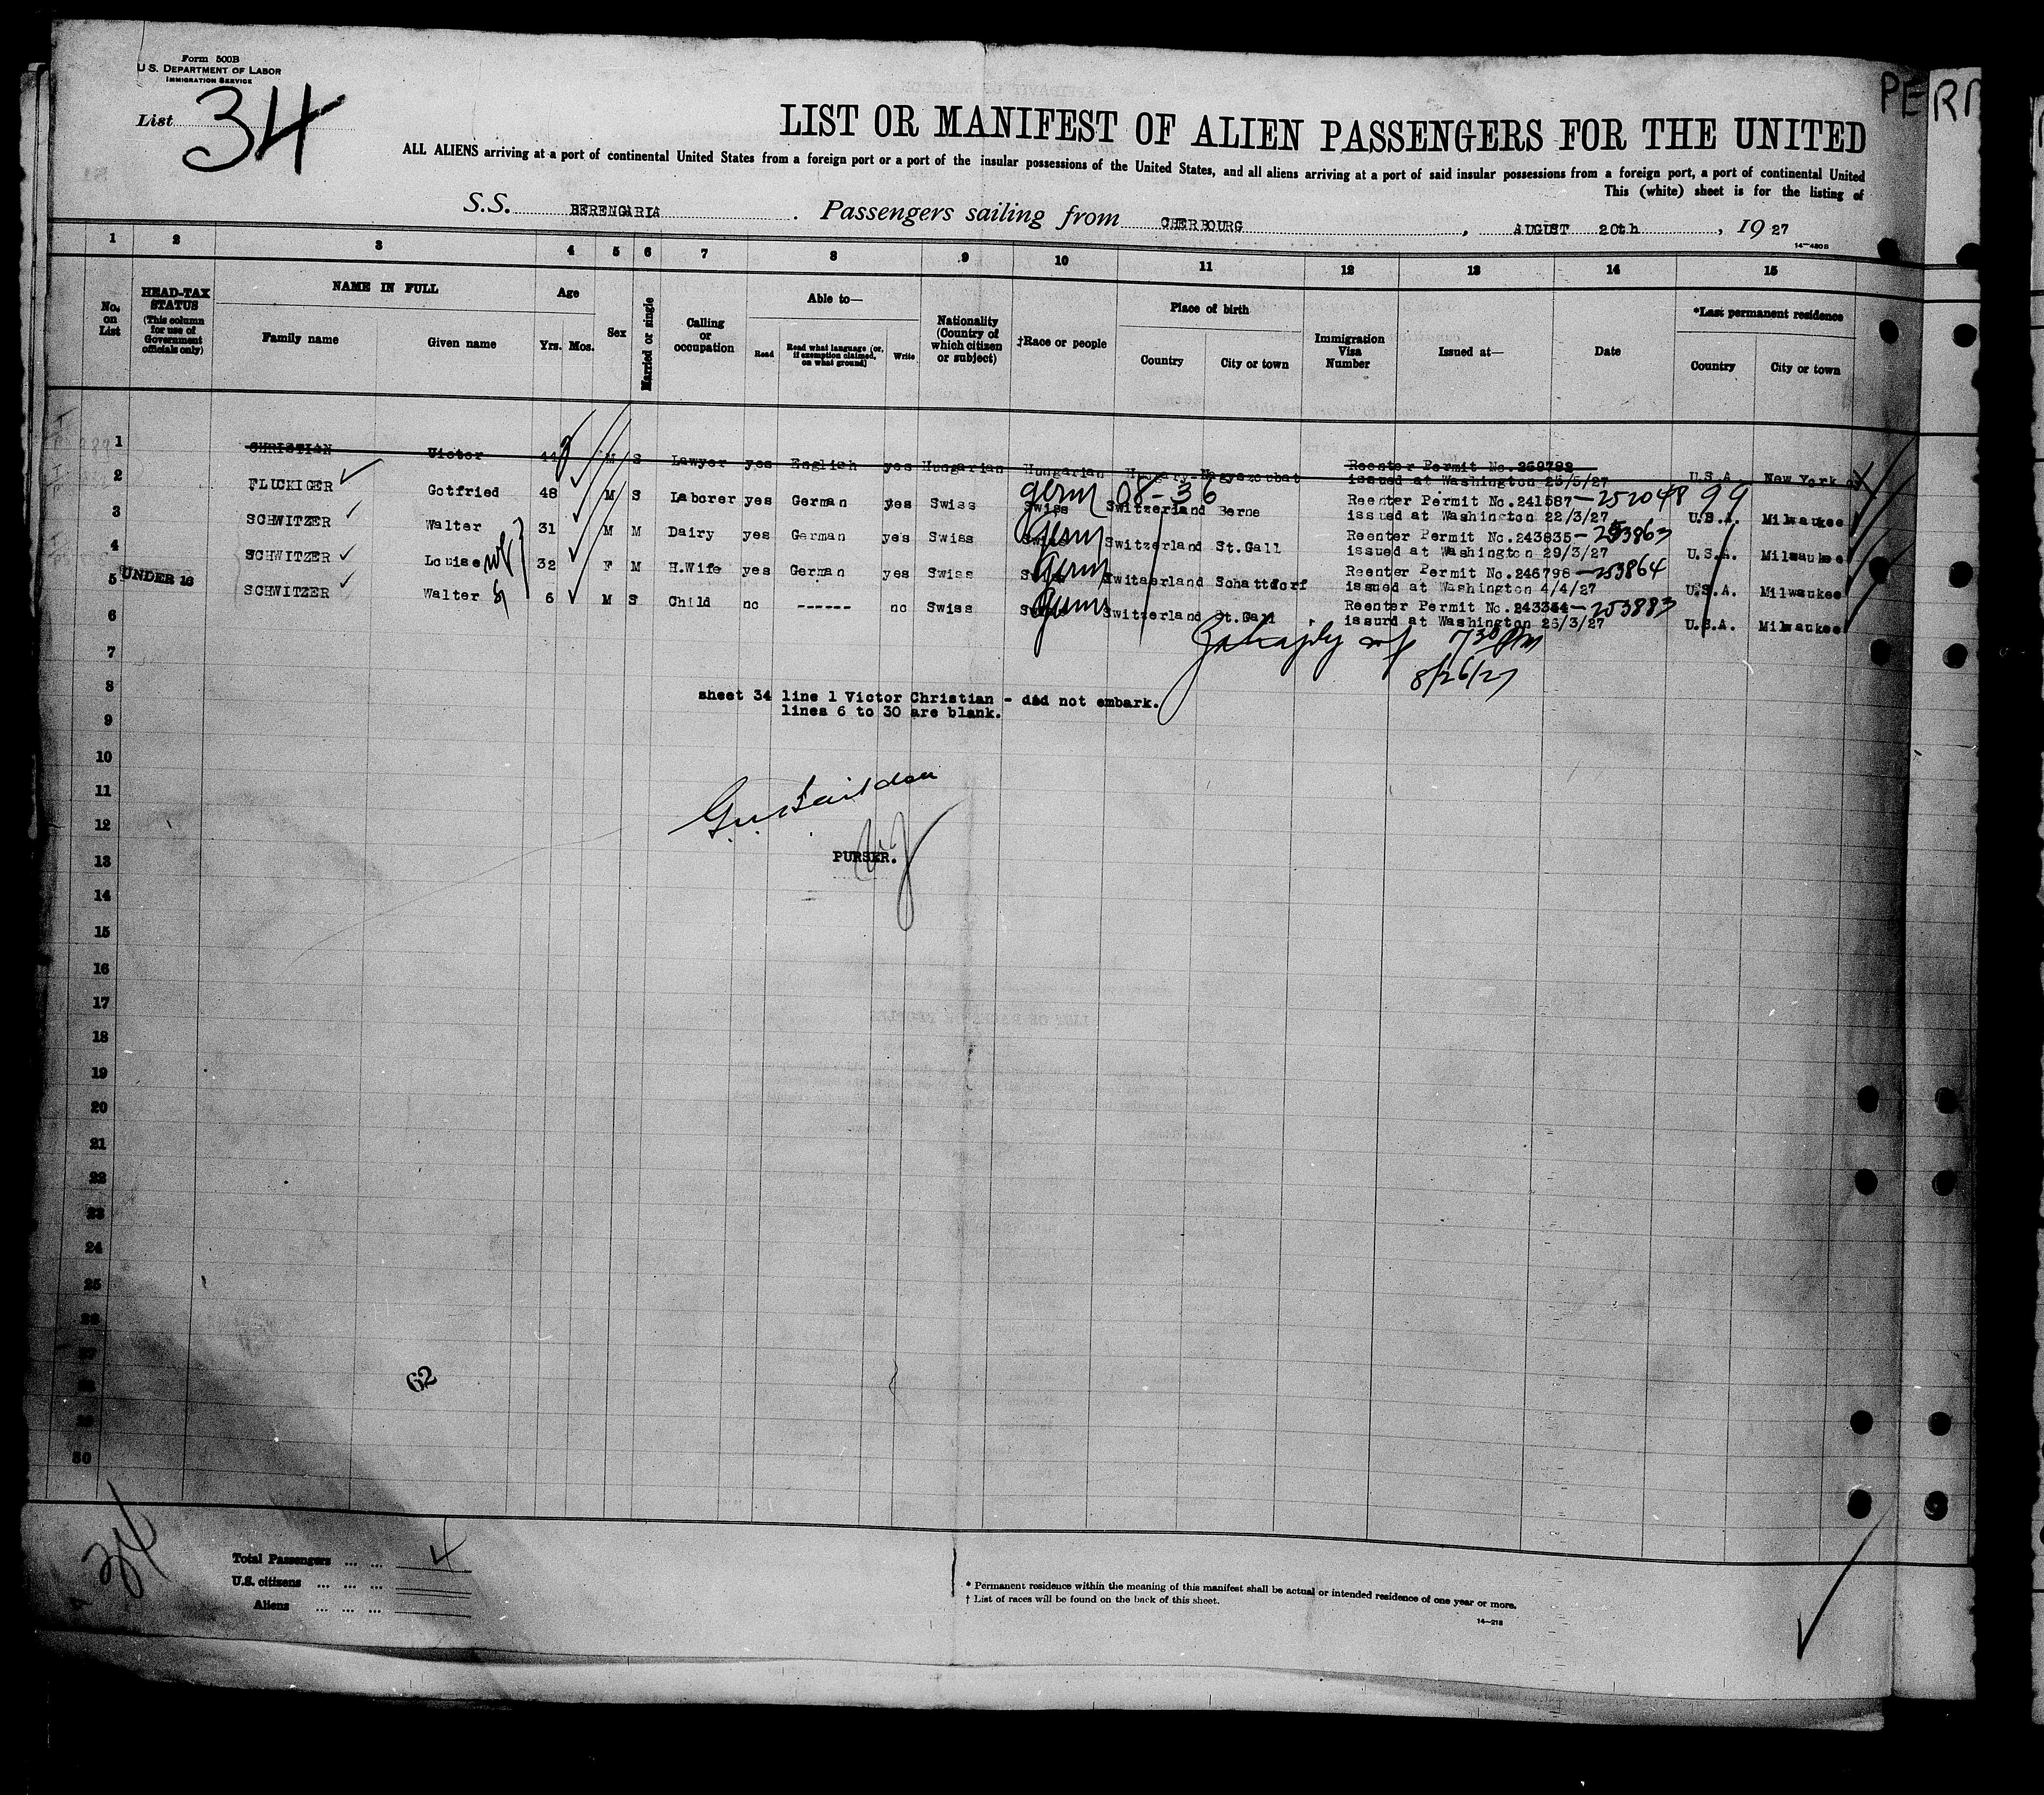 Form 500B
U.S. DEPARTMENT OF LABOR
IMMIGRATION SERVICE
List 34
PERM
LIST OR MANIFEST OF ALIEN PASSENGERS FOR THE UNITED
ALL ALIENS arriving at a port of continental United States from a foreign port or a port of the insular possessions of the United States, and all aliens arriving at a port of said insular possessions from a foreign port, a port of continental United
This (white) sheet is for the listing of
S.S. BERENGARIA. Passengers sailing from CHERBOURG, AUGUST 20th, 19 27
14—480 B
1 2 3 4 5 6 7 8 9 10 11 12 13 14 15
No. on List
HEAD-TAX STATUS (This column for use of Government officials only)
NAME IN FULL
Family name
Given name
Age
Yrs. Mos.
Sex
Married or single
Calling or occupation
Able to—
Read
Read what language (or, if exemption claimed, on what ground)
Write
Nationality (Country of which citizen or subject)
†Race or people
Place of birth
Country
City or town
Immigration Visa Number
Issued at—
Date
*Last permanent residence
Country
City or town
1 CHRISTIAN Victor 44 M S Lawyer yes English yes Hungarian Hungarian Hungary Nagyszombat Reenter Permit No. 259782 issued at Washington 25/5/27 U.S.A. New York
2 FLUCKIGER Gotfried 48 M S Laborer yes German yes Swiss Swiss germ 08-36 Switzerland Berne Reenter Permit No. 241587 - 252048 99 issued at Washington 22/3/27 U.S.A. Milwaukee
3 SCHWITZER Walter 31 M M Dairy yes German yes Swiss Swiss germ Switzerland St.Gall Reenter Permit No. 243835 - 253863 issued at Washington 29/3/27 U.S.A. Milwaukee
4 SCHWITZER Louise wf 32 F M H.Wife yes German yes Swiss Swiss germ Switzerland Schattdorf Reenter Permit No. 246796 - 253864 issued at Washington 4/4/27 U.S.A. Milwaukee
5 UNDER 16 SCHWITZER Walter S 6 M S Child no ------ no Swiss Swiss germ Switzerland St.Gall Reenter Permit No. 243354 - 253883 issurd at Washington 26/3/27 U.S.A. Milwaukee
6
7 7 30 PM
8/26/27
8 sheet 34 line 1 Victor Christian - did not embark.
9 lines 6 to 30 are blank.
10
11
12
13 PURSER.
14
15
16
17
18
19
20
21
22
23
24
25
26
27
62
28
29
30
34
Total Passengers ... ... 4
U.S. citizens ... ... ...
Aliens ... ... ...
* Permanent residence within the meaning of this manifest shall be actual or intended residence of one year or more.
† List of races will be found on the back of this sheet.
14—218